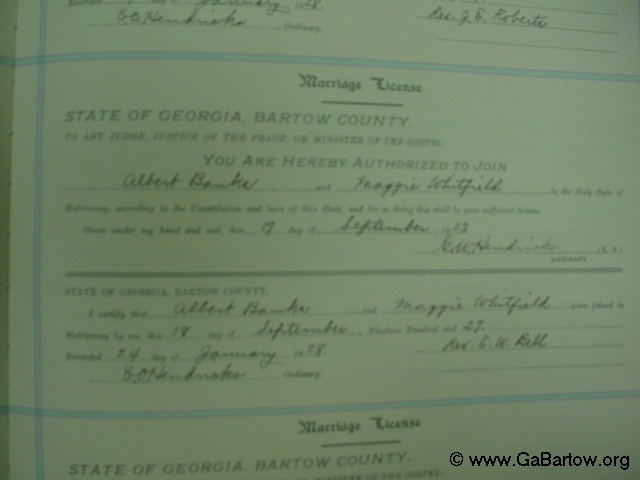 January 1928
E.O. Hendricks, Ordinary.
Rev. J. E. Roberts
Marriage License
STATE OF GEORGIA, BARTOW COUNTY.
TO ANY JUDGE, JUSTICE OF THE PEACE, OR MINISTER OF THE GOSPEL:
YOU ARE HEREBY AUTHORIZED TO JOIN
Albert Banks and Maggie Whitfield in the Holy State of
Matrimony, according to the Constitution and laws of this State, and for so doing this shall be your sufficient license.
Given under my hand and seal, this 17 day of September 19
G.W. Hendricks (L. S.)
ORDINARY
STATE OF GEORGIA, BARTOW COUNTY.
I certify that Albert Banks and Maggie Whitfield were joined in
Matrimony by me, this 18 day of September, Nineteen Hundred and 27.
Recorded 24 day of January 1928.
Rev. E. W. Bell
E.O. Hendricks, Ordinary.
Marriage License
STATE OF GEORGIA, BARTOW COUNTY.
MINISTER OF THE GOSPEL:
© www.GaBartow.org